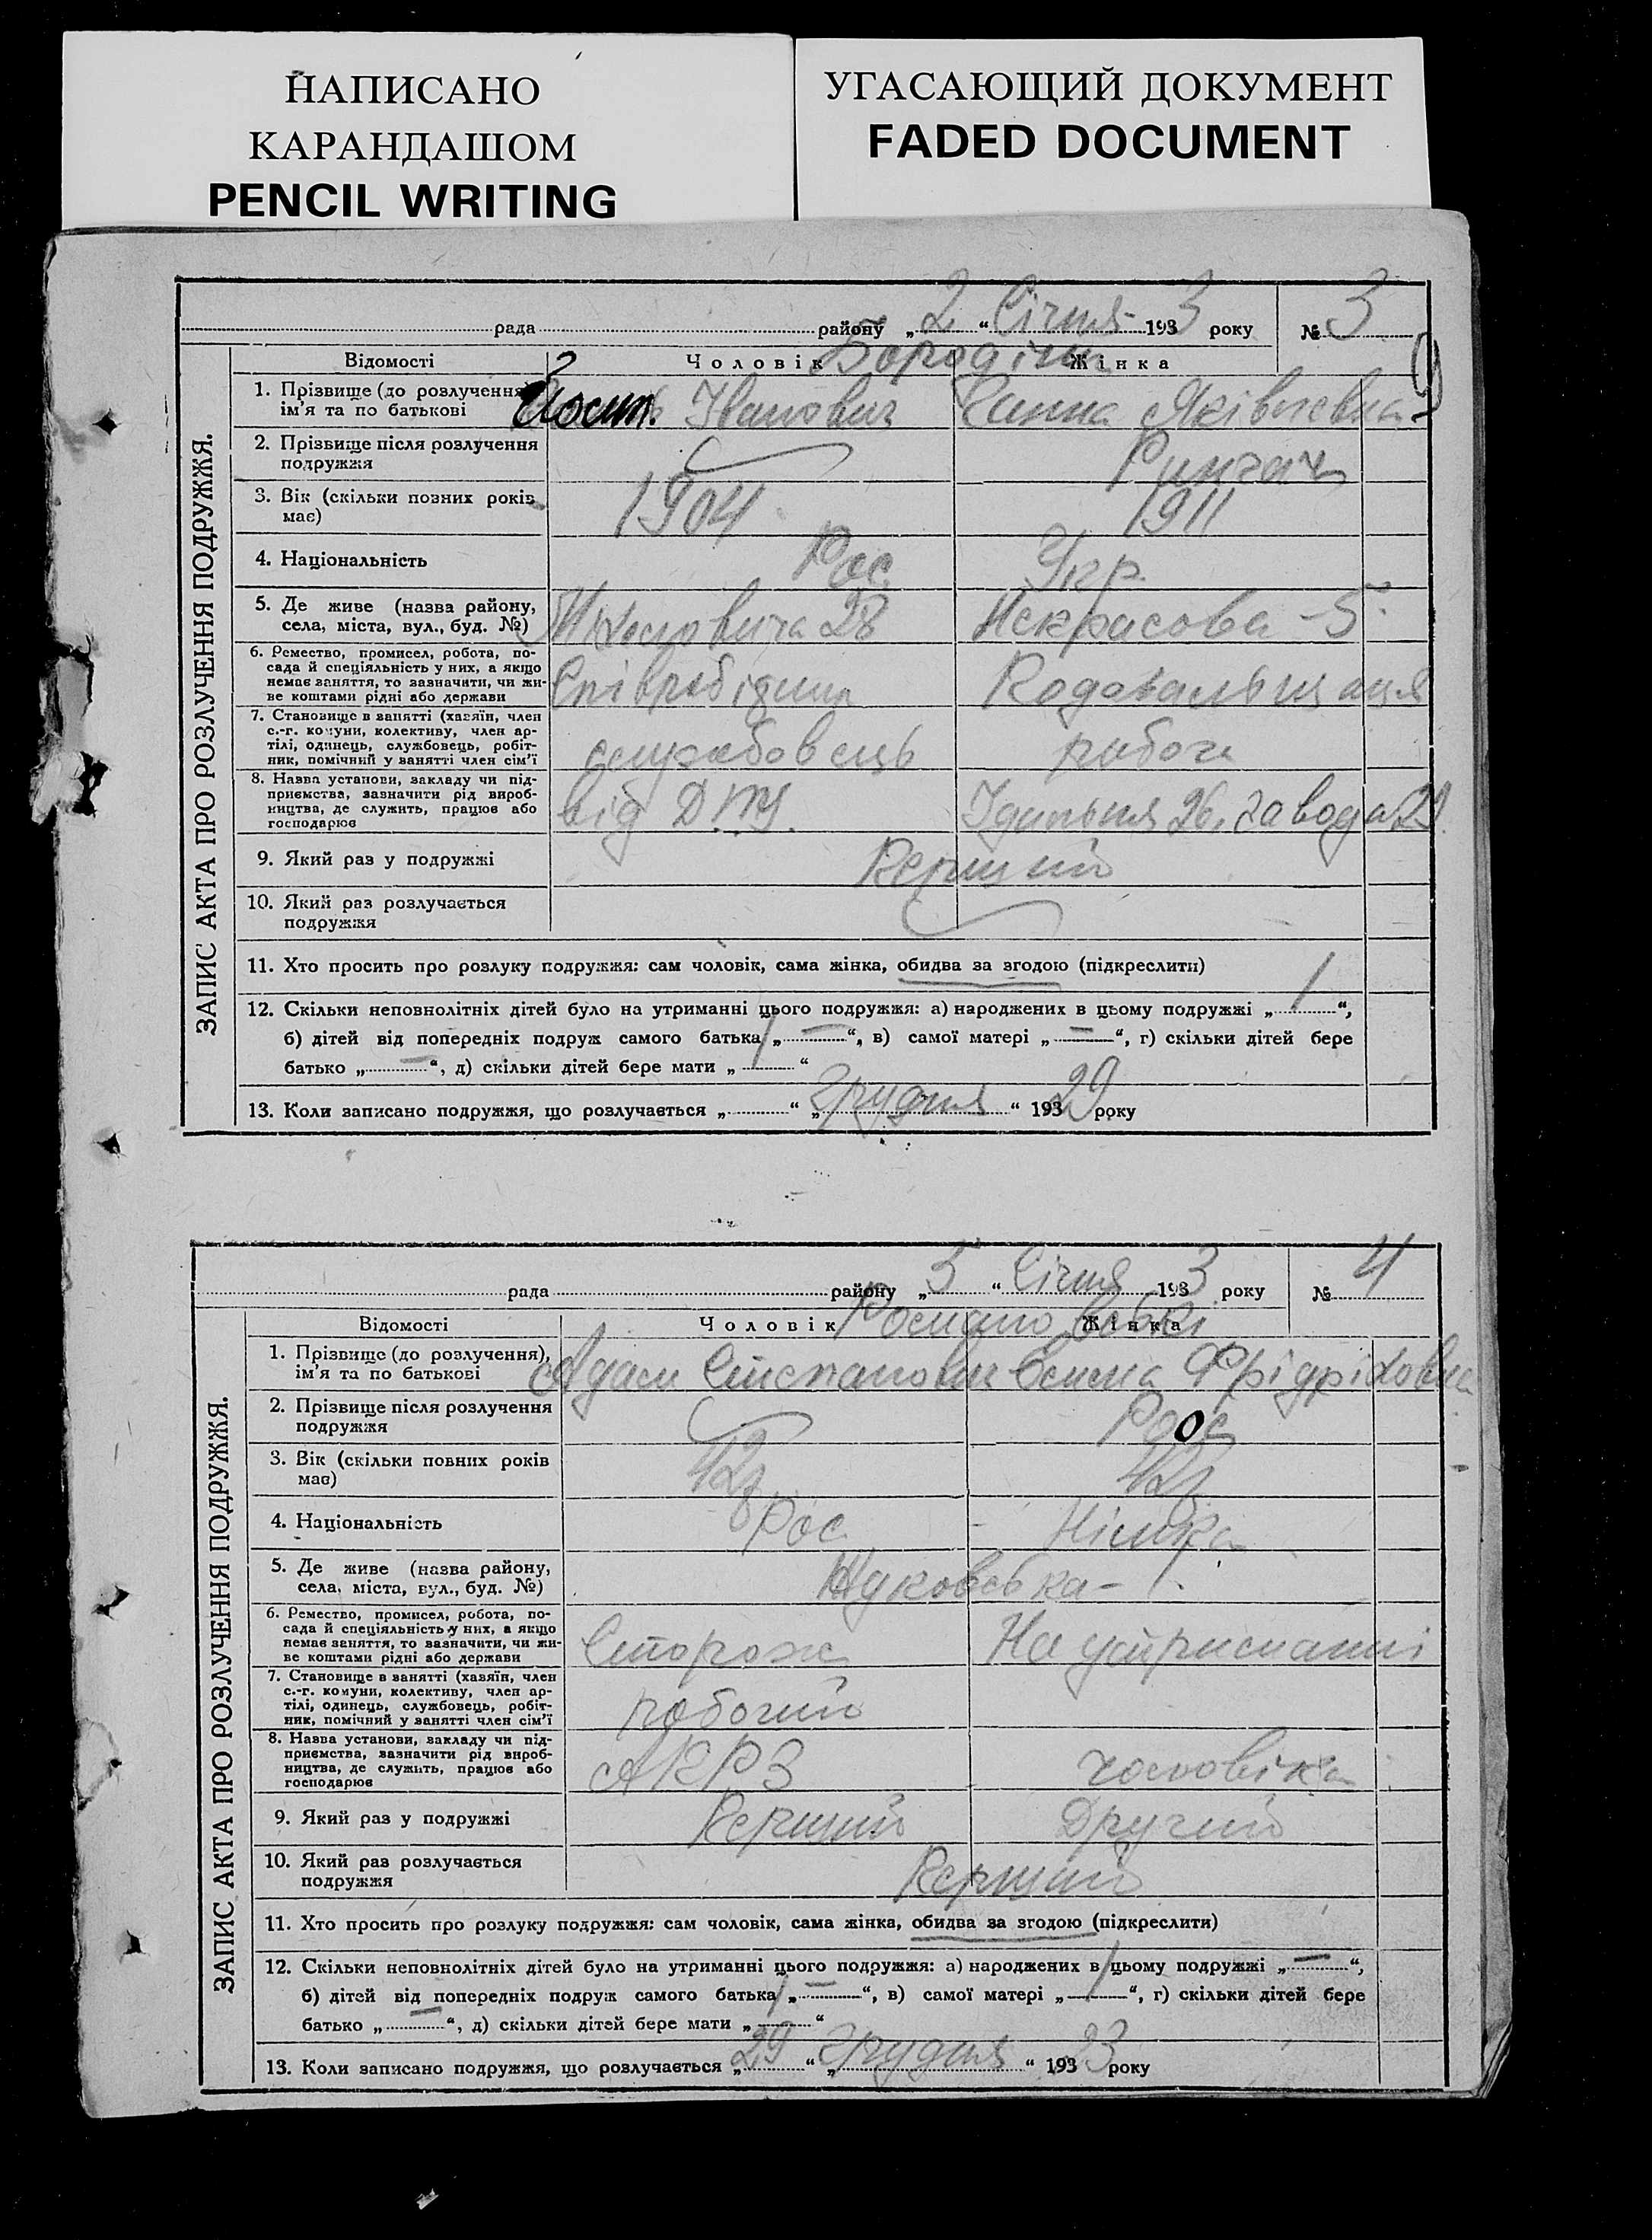 НАПИСАНО
КАРАНДАШОМ
PENCIL WRITING
УГАСАЮЩИЙ ДОКУМЕНТ
FADED DOCUMENT
ЗАПИС АКТА ПРО РОЗЛУЧЕННЯ ПОДРУЖЖЯ.
рада району „ 2 “ Січня 193 3 року № 3
Відомості Чоловік Жінка
Бородіни
1. Прізвище (до розлучення) ім'я та по батькові Йосип Іванович Ганна Яківлевна
2. Прізвище після розлучення подружжя
3. Вік (скільки повних років має) 1904 1911
4. Національність Рос Укр.
5. Де живе (назва району, села, міста, вул., буд. №) 28 Некрасова - 5
6. Ремество, промисел, робота, по-
сада й спеціяльність у них, а якщо
немає заняття, то зазначити, чи жи-
ве коштами рідні або держави
Співробітник
7. Становище в занятті (хазяїн, член
с.-г. комуни, колективу, член ар-
тілі, одинець, службовець, робіт-
ник, помічний у занятті член сім'ї
службовець робоча
8. Назва установи, закладу чи під-
приємства, зазначити рід вироб-
ництва, де служить, працює або
господарює
від Їдальня 26, завода 29.
9. Який раз у подружжі Перший
10. Який раз розлучається
подружжя
11. Хто просить про розлуку подружжя: сам чоловік, сама жінка, обидва за згодою (підкреслити)
12. Скільки неповнолітніх дітей було на утриманні цього подружжя: а) народжених в цьому подружжі „ 1 “,
б) дітей від попередніх подруж самого батька „ — “, в) самої матері „ — “, г) скільки дітей бере
батько „ — “, д) скільки дітей бере мати „ 1 “
13. Коли записано подружжя, що розлучається „ “ „ Грудня “ 193 29 року
ЗАПИС АКТА ПРО РОЗЛУЧЕННЯ ПОДРУЖЖЯ.
рада району „ 5 “ Січня 193 3 року № 4
Відомості Чоловік Жінка
1. Прізвище (до розлучення), ім'я та по батькові Адам Степанович Фрідріховна
2. Прізвище після розлучення
подружжя Роос
3. Вік (скільки повних років
має) 42р 42р
4. Національність Рос Німка
5. Де живе (назва району,
села, міста, вул., буд. №) Жуковська - 1.
6. Ремество, промисел, робота, по-
сада й спеціяльність у них, а якщо
немає заняття, то зазначити, чи жи-
ве коштами рідні або держави
Сторож На утриманні
7. Становище в занятті (хазяїн, член
с.-г. комуни, колективу, член ар-
тілі, одинець, службовець, робіт-
ник, помічний у занятті член сім'ї
робочий
8. Назва установи, закладу чи під-
приємства, зазначити рід вироб-
ництва, де служить, працює або
господарює
АКРЗ чоловіка
9. Який раз у подружжі Перший Другий
10. Який раз розлучається
подружжя Перший
11. Хто просить про розлуку подружжя: сам чоловік, сама жінка, обидва за згодою (підкреслити)
12. Скільки неповнолітніх дітей було на утриманні цього подружжя: а) народжених в цьому подружжі „ — “,
б) дітей від попередніх подруж самого батька „ — “, в) самої матері „ 1 “, г) скільки дітей бере
батько „ — “, д) скільки дітей бере мати „ 1 “
13. Коли записано подружжя, що розлучається „ 29 “ „ Грудня “ 193 23 року